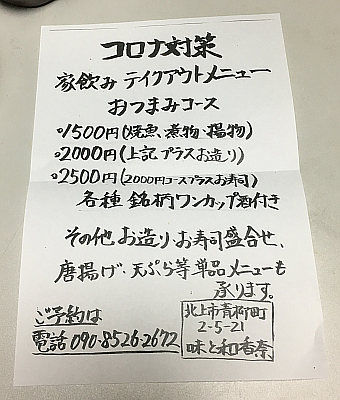 コロナ対策
家飲み テイクアウトメニュー
おつまみコース
1500円(焼魚、煮物・揚物)
2000円(上記プラスお造り)
2500円(2000円コースプラスお寿司)
各種 銘柄ワンカップ酒付き
その他 お造り・お寿司盛合せ、
唐揚げ・天ぷら等単品メニューも
承ります。
ご予約は
電話 090-8526-2672
北上市青柳町
2-5-21
味と和香奈